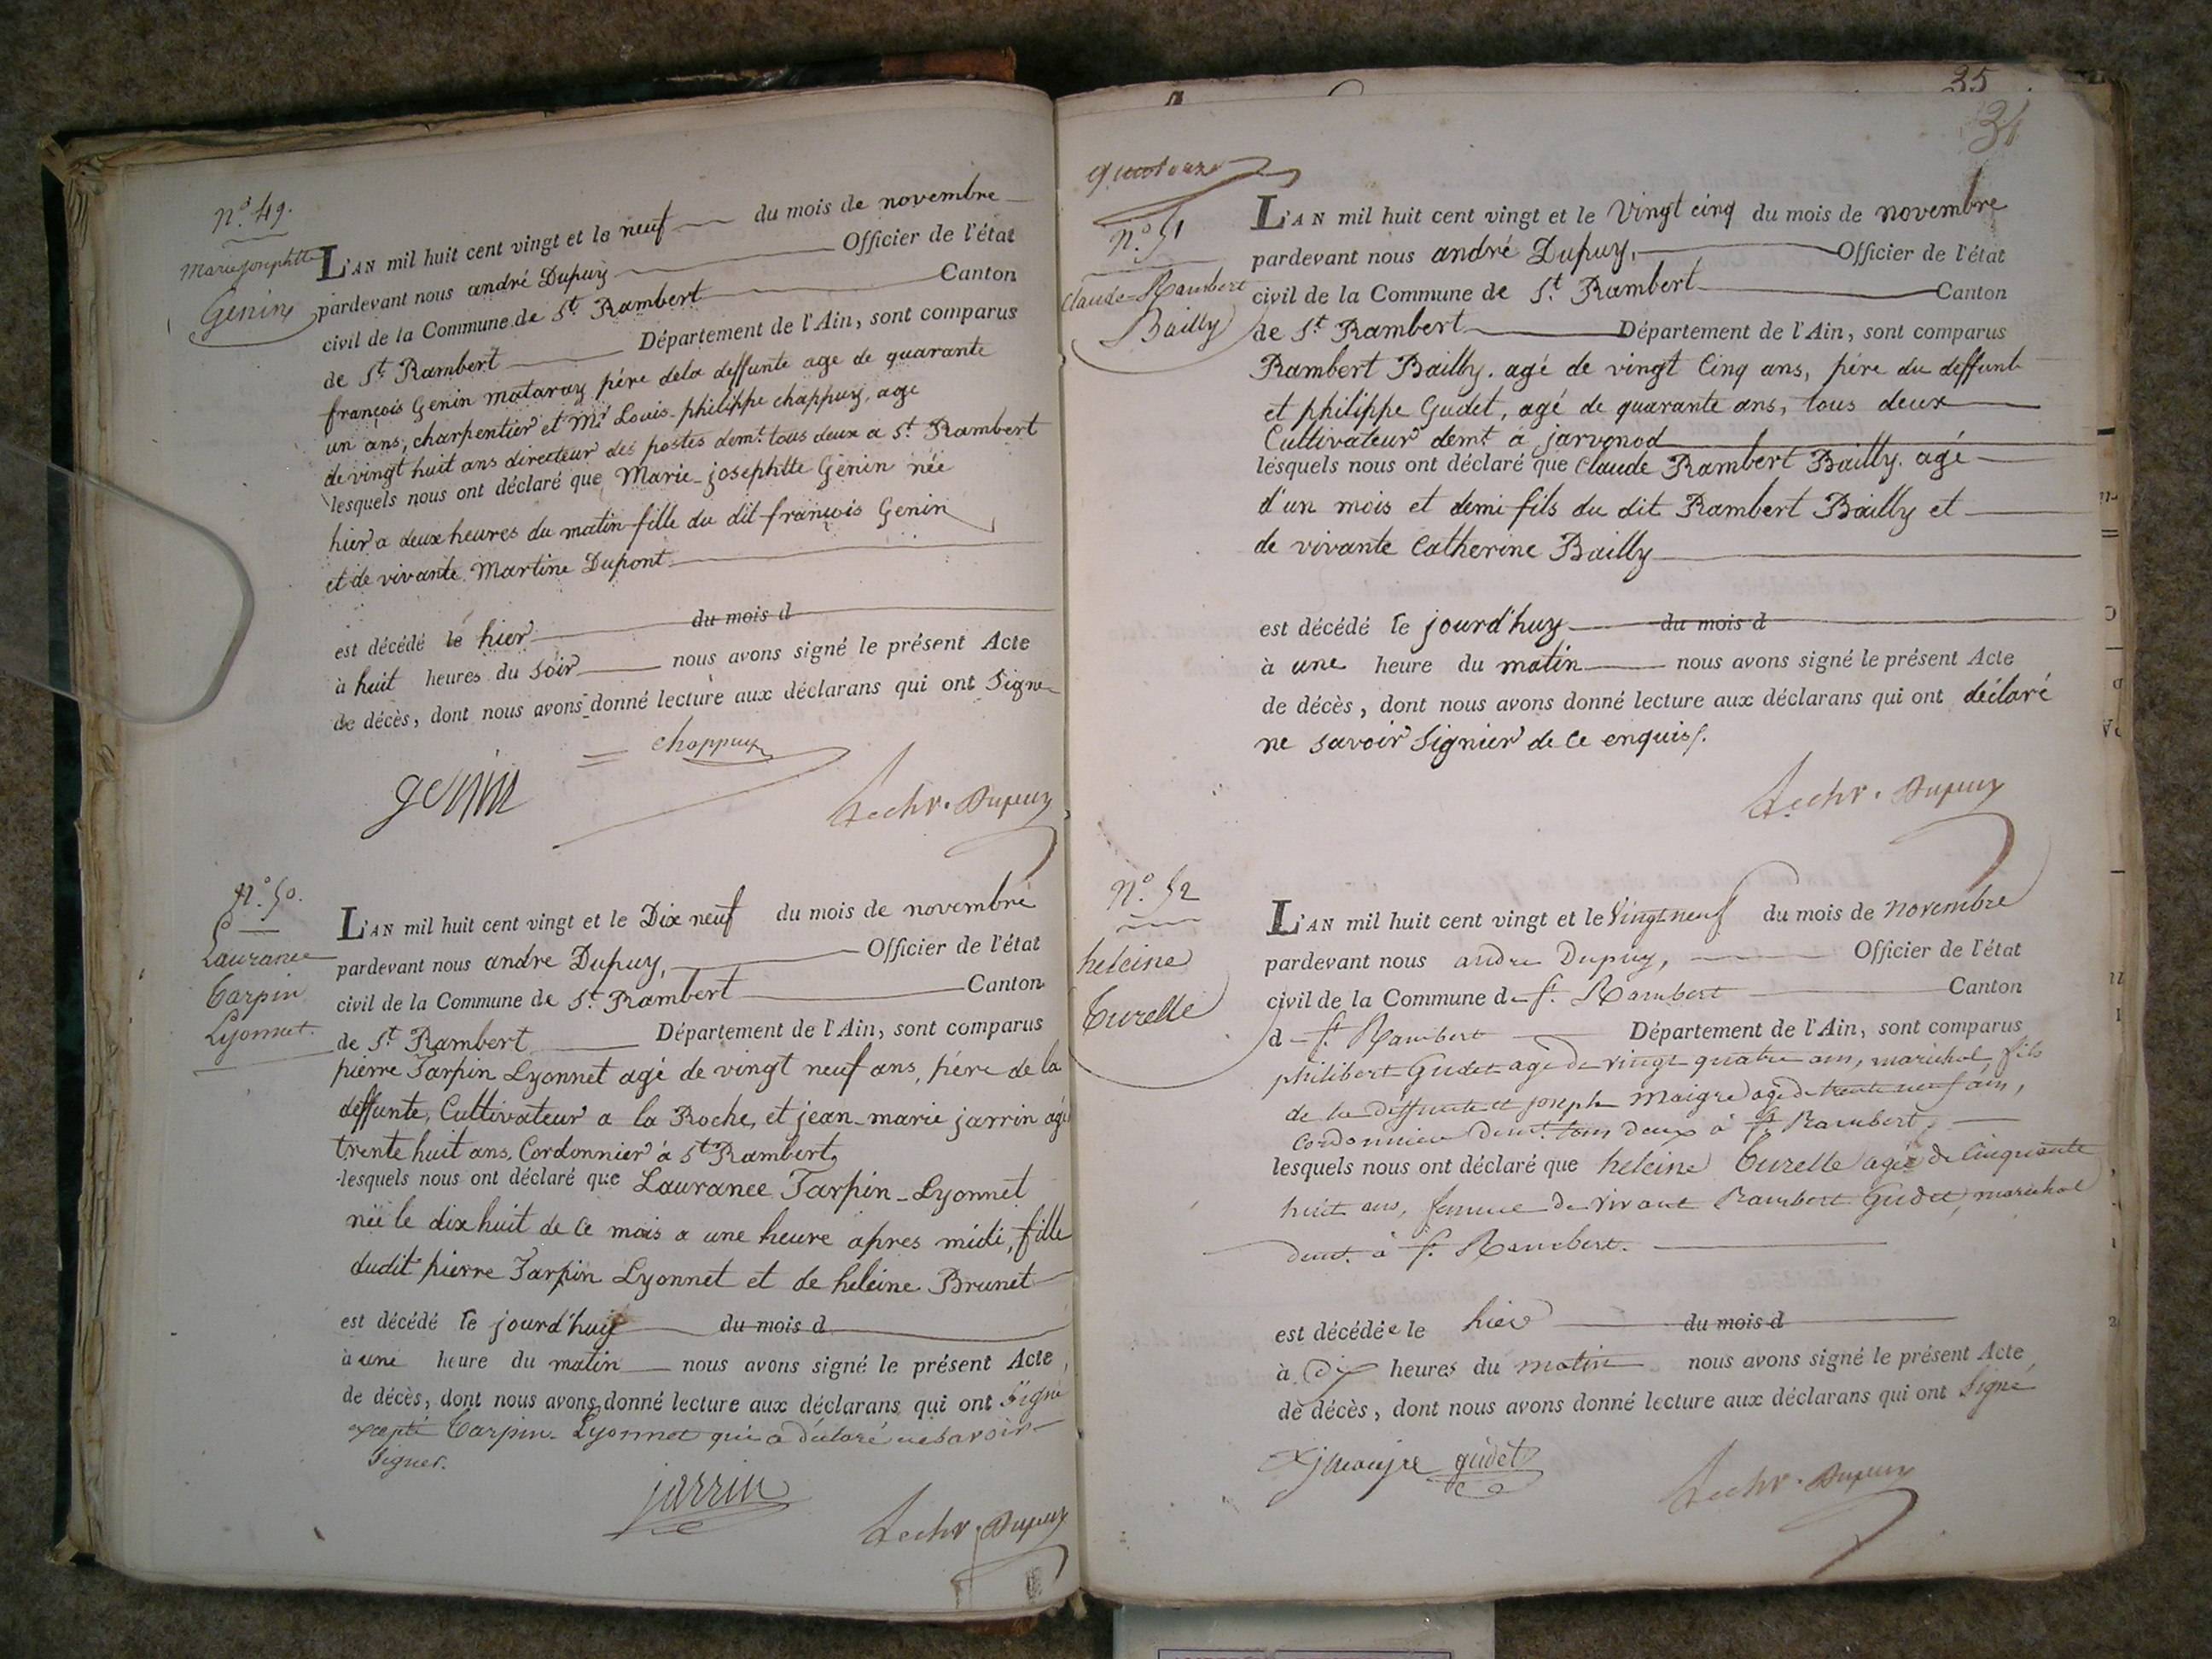 N.º 49.
Marie josephtte
Genin
L'AN mil huit cent vingt et le neuf du mois de novembre
pardevant nous andré Dupuy Officier de l'état
civil de la Commune de St. Rambert Canton
de St. Rambert Département de l'Ain, sont comparus
françois Genin mataray pére dela deffunte age de quarante
un ans, charpentier et Mr Louis-philippe chappuy, age
de vingt huit ans directeur des postes demt. tous deux a St. Rambert
lesquels nous ont déclaré que Marie-josephtte Genin née
hier a deux heures du matin fille du dit françois Genin
et de vivante Martine Dupont
est décédé le hier du mois d
à huit heures du soir nous avons signé le présent Acte
de décès, dont nous avons donné lecture aux déclarans qui ont Signe
chappuy
genin
Dupuy
N.º 50.
Laurance
Tarpin
Lyonnet.
L'AN mil huit cent vingt et le Dix neuf du mois de novembre
pardevant nous andre Dupuy, Officier de l'état
civil de la Commune de St. Rambert Canton
de St. Rambert Département de l'Ain, sont comparus
pierre Tarpin Lyonnet agé de vingt neuf ans, pére de la
deffunte, Cultivateur a la Roche, et jean-marie jarrin agé
trente huit ans, Cordonnier à St Rambert,
lesquels nous ont déclaré que Laurance Tarpin-Lyonnet
née le dix huit de ce mois a une heure apres midi, fille
dudit pierre Tarpin Lyonnet et de heleine Brunet
est décédé le jourd'huy du mois d
à une heure du matin nous avons signé le présent Acte
de décès, dont nous avons donné lecture aux déclarans qui ont Signé
excepté Tarpin-Lyonnet qui a déclaré ne savoir
Signer.
jarrin
Dupuy
35
34
quatorze
N.º 51
Claude-Rambert
Bailly
L'AN mil huit cent vingt et le Vingt cinq du mois de novembre
pardevant nous andré Dupuy, Officier de l'état
civil de la Commune de St. Rambert Canton
de St. Rambert Département de l'Ain, sont comparus
Rambert Bailly, agé de vingt Cinq ans, pére du deffunt
et philippe Gudet, agé de quarante ans, tous deux
Cultivateur demt. à jarvonod
lesquels nous ont déclaré que Claude Rambert Bailly, agé
d'un mois et demi fils du dit Rambert Bailly et
de vivante Catherine Bailly
est décédé le jourd'huy du mois d
à une heure du matin nous avons signé le présent Acte
de décès, dont nous avons donné lecture aux déclarans qui ont déclaré
ne savoir Signier de ce enquis.
Dupuy
N.º 52
heleine
Turelle
L'AN mil huit cent vingt et le Vingt neuf du mois de Novembre
pardevant nous andre Dupuy, Officier de l'état
civil de la Commune d St. Rambert Canton
d St. Rambert Département de l'Ain, sont comparus
philibert Gudet agé de vingt quatre ans, maréchal fils
de la deffunte et joseph Maigre agé de trente neuf ans,
Cordonnier demt. tous deux à St. Rambert.
lesquels nous ont déclaré que heleine Turelle agée de Cinquante
huit ans, femme de vivant Rambert Gudet, maréchal
demt. à St. Rambert.
est décédée le hier du mois d
à dix heures du matin nous avons signé le présent Acte
de décès, dont nous avons donné lecture aux déclarans qui ont Signé
gudet
Dupuy